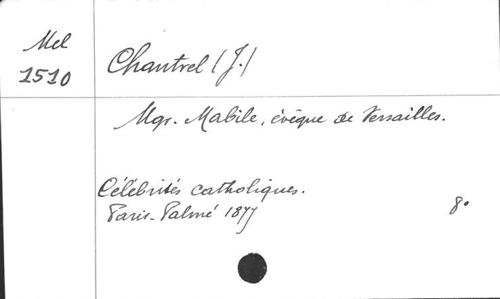 Mel
1510
Chantrel (J.)
Mgr. Mabile, évêque de Versailles.
Célébrités catholiques.
Paris-Palmé 1877
8°